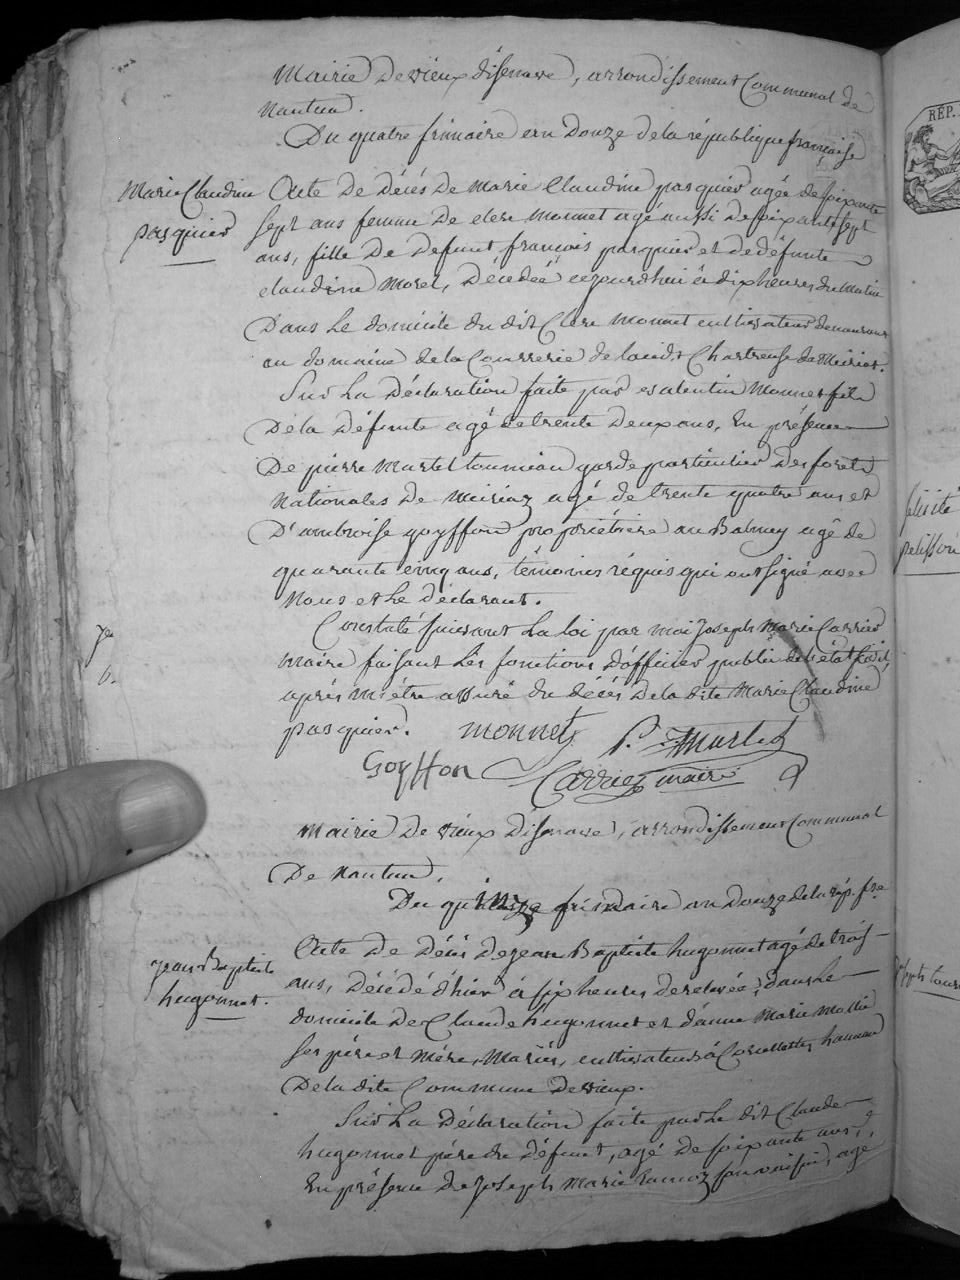 Mairie De vieux d'isenave, arrondissement Communal de
Nantua.
Du quatre frimaire an Douze de la république française
Marie Claudine
pasquier
Acte De Décés De Marie Claudine pasquier agée de soixante
sept ans femme De clere Monnet agé aussi de soixante sept
ans, fille De Defunt françois pasquier et de défunte
claudine Morel, Décedée cejourdhui à dix heures du Matin
Dans Le domicile du dit Clere Monnet cultivateur demeurant
au domaine de la Courrerie de Chartreuse de Meiriat.
Sur La Déclaration faite par valentin Monnet fils
De la Défunte agé de trente Deux ans, En présence
De pierre Martel tournian garde particulier des forets
Nationales de Meiriaz agé de trente quatre ans et
D'ambroise goyffon propriétaire au Balmay agé de
quarante cinq ans, témoins réquis qui ont signé avec
Nous et Le Déclarant.
Constaté suivant La loi par moi Joseph Marie Carrier
maire faisant Les fonctions D'officier public de l'état civil,
aprés m'être assuré du décés De la dite Marie Claudine
pasquier. monnet P. Martel
Goyffon Carrier maire
Mairie De vieux D'isenave, arrondissement Communal
De Nantua.
Du quinze frimaire an Douze de la rép. fse
jean Baptiste
hugonnet.
Acte De Décés De jean Baptiste hugonnet agé de trois
ans, Décédé d'hier à six heures de relevée, dans Le
domicile De Claude hugonnet et d'anne Marie
ses père et Mère, Mariés, cultivateurs à hameau
De la dite Commune De vieux.
Sur La Déclaration faite par Le dit Claude
hugonnet père du Défunt, agé De soixante ans,
En présence De Joseph Marie son voisin, agé
félicité
pelisson